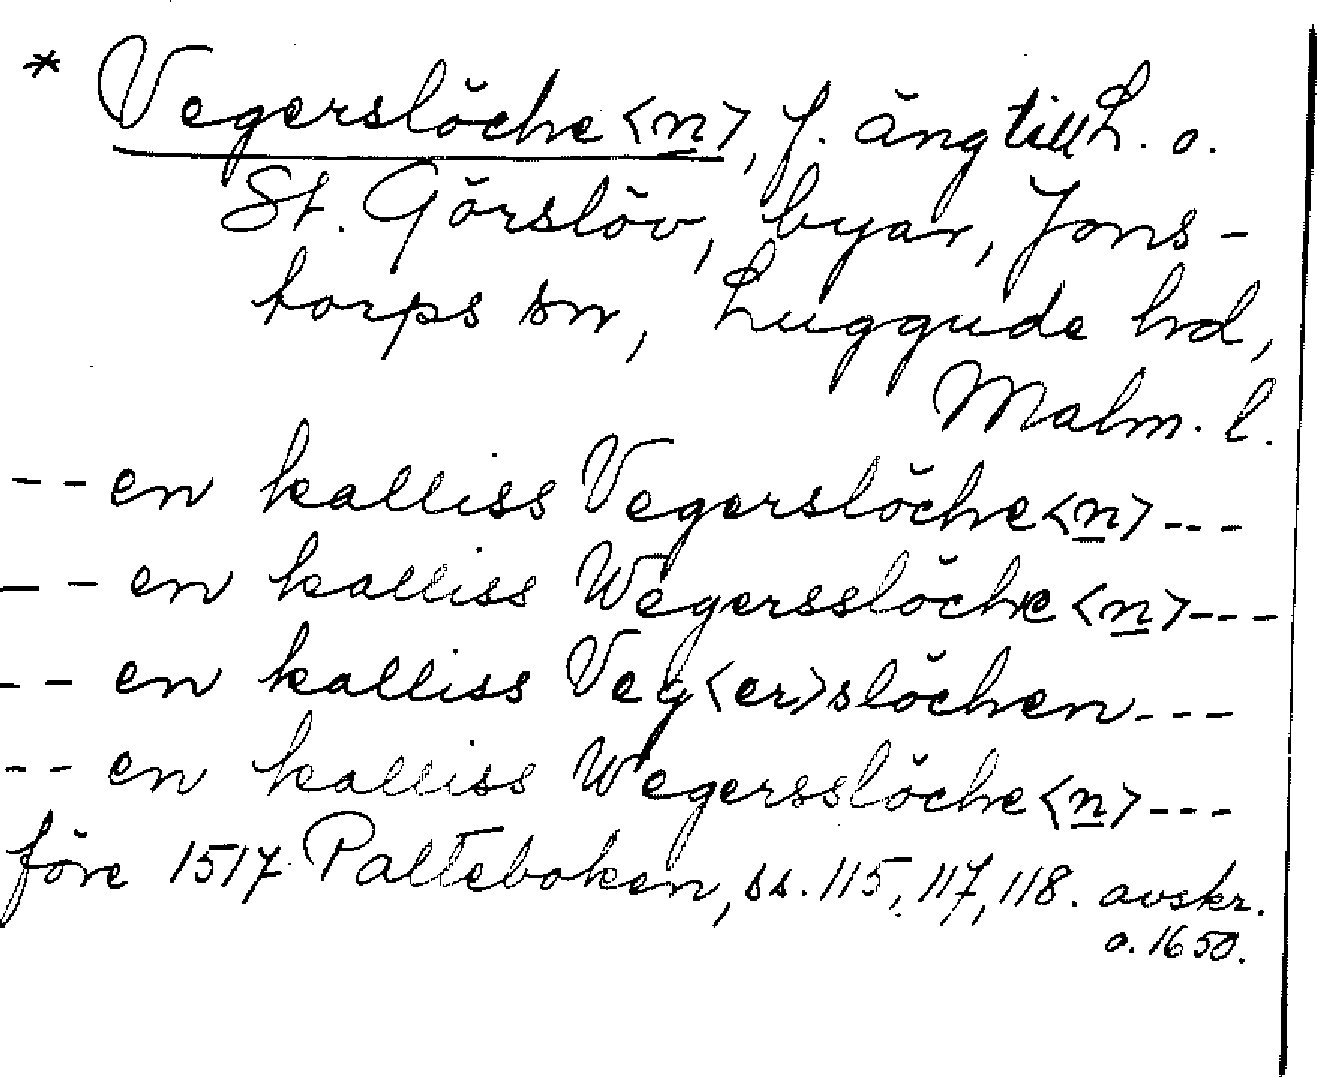 * Vegerslöche<n>, f. äng till L. o.
St. Görslöv, byar, Jons-
torps sn, Luggude hd,
Malm. l.
-- en kalliss Vegerslöche<n> ---
-- en kalliss Wegersslöche<n> ---
-- en kalliss Veg<er>slöchen ---
-- en kalliss Wegersslöche<n> ---
före 1517 Palteboken, ss. 115, 117, 118. avskr.
o. 1650.